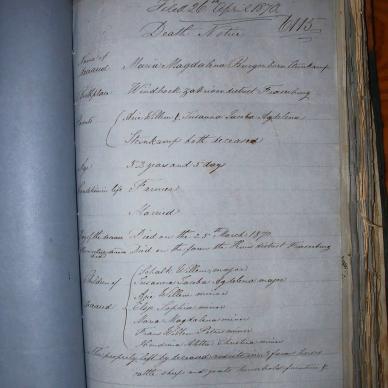 Filed 26th April 1870.
6115
Death Notice
Name of
deceased Maria Magdalena Kruger born Steenkamp
Birthplace Windhoek district Fraserburg
Parents Arie Willem & Susanna Jacoba Agdelena
Steenkamp both deceased
Age 53 year and 5 day
Condition in life Farmer
Married
Day of the decease Died on the 25th March 1870
Died on the farm the district Fraserburg
Children of
deceased
Schalk Willem major
Susanna Jacoba Agdelena major
Arie Willem minor
Elsje Sophia minor
Maria Magdalena minor
Frans Willem Petrus minor
Hendrina minor
The property left by deceased consists in
cattle sheep and goats household furniture &